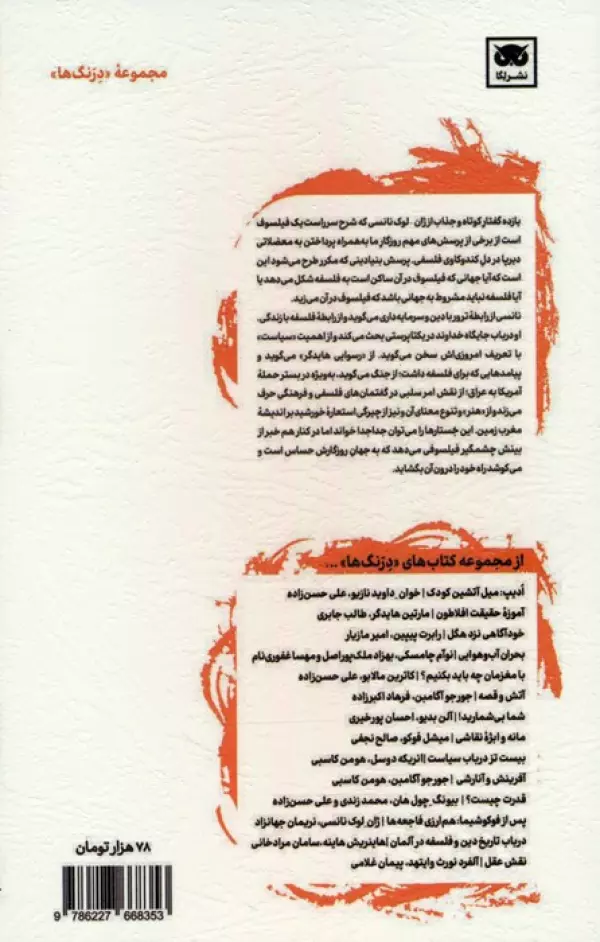 نشر لگا
مجموعهٔ «دِرَنگ‌ها»
یازده گفتار کوتاه و جذاب از ژان - لوک نانسی که شرح سرراست یک فیلسوف
است از برخی از پرسش‌های مهم روزگار ما به‌همراه پرداختن به معضلاتی
دیرپا در دل کندوکاوی فلسفی. پرسش بنیادینی که مکرر طرح می‌شود این
است که آیا جهانی که فیلسوف در آن ساکن است به فلسفه شکل می‌دهد یا
آیا فلسفه نباید مشروط به جهانی باشد که فیلسوف در آن می‌زید.
نانسی از رابطهٔ ترور با دین و سرمایه‌داری می‌گوید و از رابطهٔ فلسفه با زندگی.
او درباب جایگاه خداوند در یکتاپرستی بحث می‌کند و از اهمیت «سیاست»
با تعریف امروزی‌اش سخن می‌گوید. از «رسوایی هایدگر» می‌گوید و
پیامدهایی که برای فلسفه داشت؛ از جنگ می‌گوید، به‌ویژه در بستر حملهٔ
آمریکا به عراق؛ از نقش امر سلبی در گفتمان‌های فلسفی و فرهنگی حرف
می‌زند و از «هنر» و تنوع معنای آن و نیز از چیرگی استعارهٔ خورشید بر اندیشهٔ
مغرب زمین. این جستارها را می‌توان جداجدا خواند اما در کنار هم خبر از
بینش چشمگیر فیلسوفی می‌دهد که به جهان روزگارش حساس است و
می‌کوشد راه خود را درون آن بگشاید.
از مجموعه کتاب‌های «دِرَنگ‌ها» ...
اُدیپ: میل آتشین کودک | خوان_داوید نازیو، علی حسن‌زاده
آموزهٔ حقیقت افلاطون | مارتین هایدگر، طالب جابری
خودآگاهی نزد هگل | رابرت پیپین، امیر مازیار
بحران آب‌وهوایی | نوآم چامسکی، بهزاد ملک‌پور اصل و مهسا غفوری‌نام
با مغزمان چه باید بکنیم؟ | کاترین مالابو، علی حسن‌زاده
آتش و قصه | جورجو آگامبن، فرهاد اکبرزاده
شما بی‌شمارید! | آلن بدیو، احسان پورخیری
مانه و ابژهٔ نقاشی | میشل فوکو، صالح نجفی
بیست تز درباب سیاست | انریکه دوسل، هومن کاسبی
آفرینش و آنارشی | جورجو آگامبن، هومن کاسبی
قدرت چیست؟ | بیونگ_چول هان، محمد زندی و علی حسن‌زاده
پس از فوکوشیما: هم‌ارزی فاجعه‌ها | ژان لوک نانسی، نریمان جهانزاد
درباب تاریخ دین و فلسفه در آلمان | هاینریش هاینه، سامان مرادخانی
نقش عقل | آلفرد نورث وایتهد، پیمان غلامی
۷۸ هزار تومان
9 786227 668353